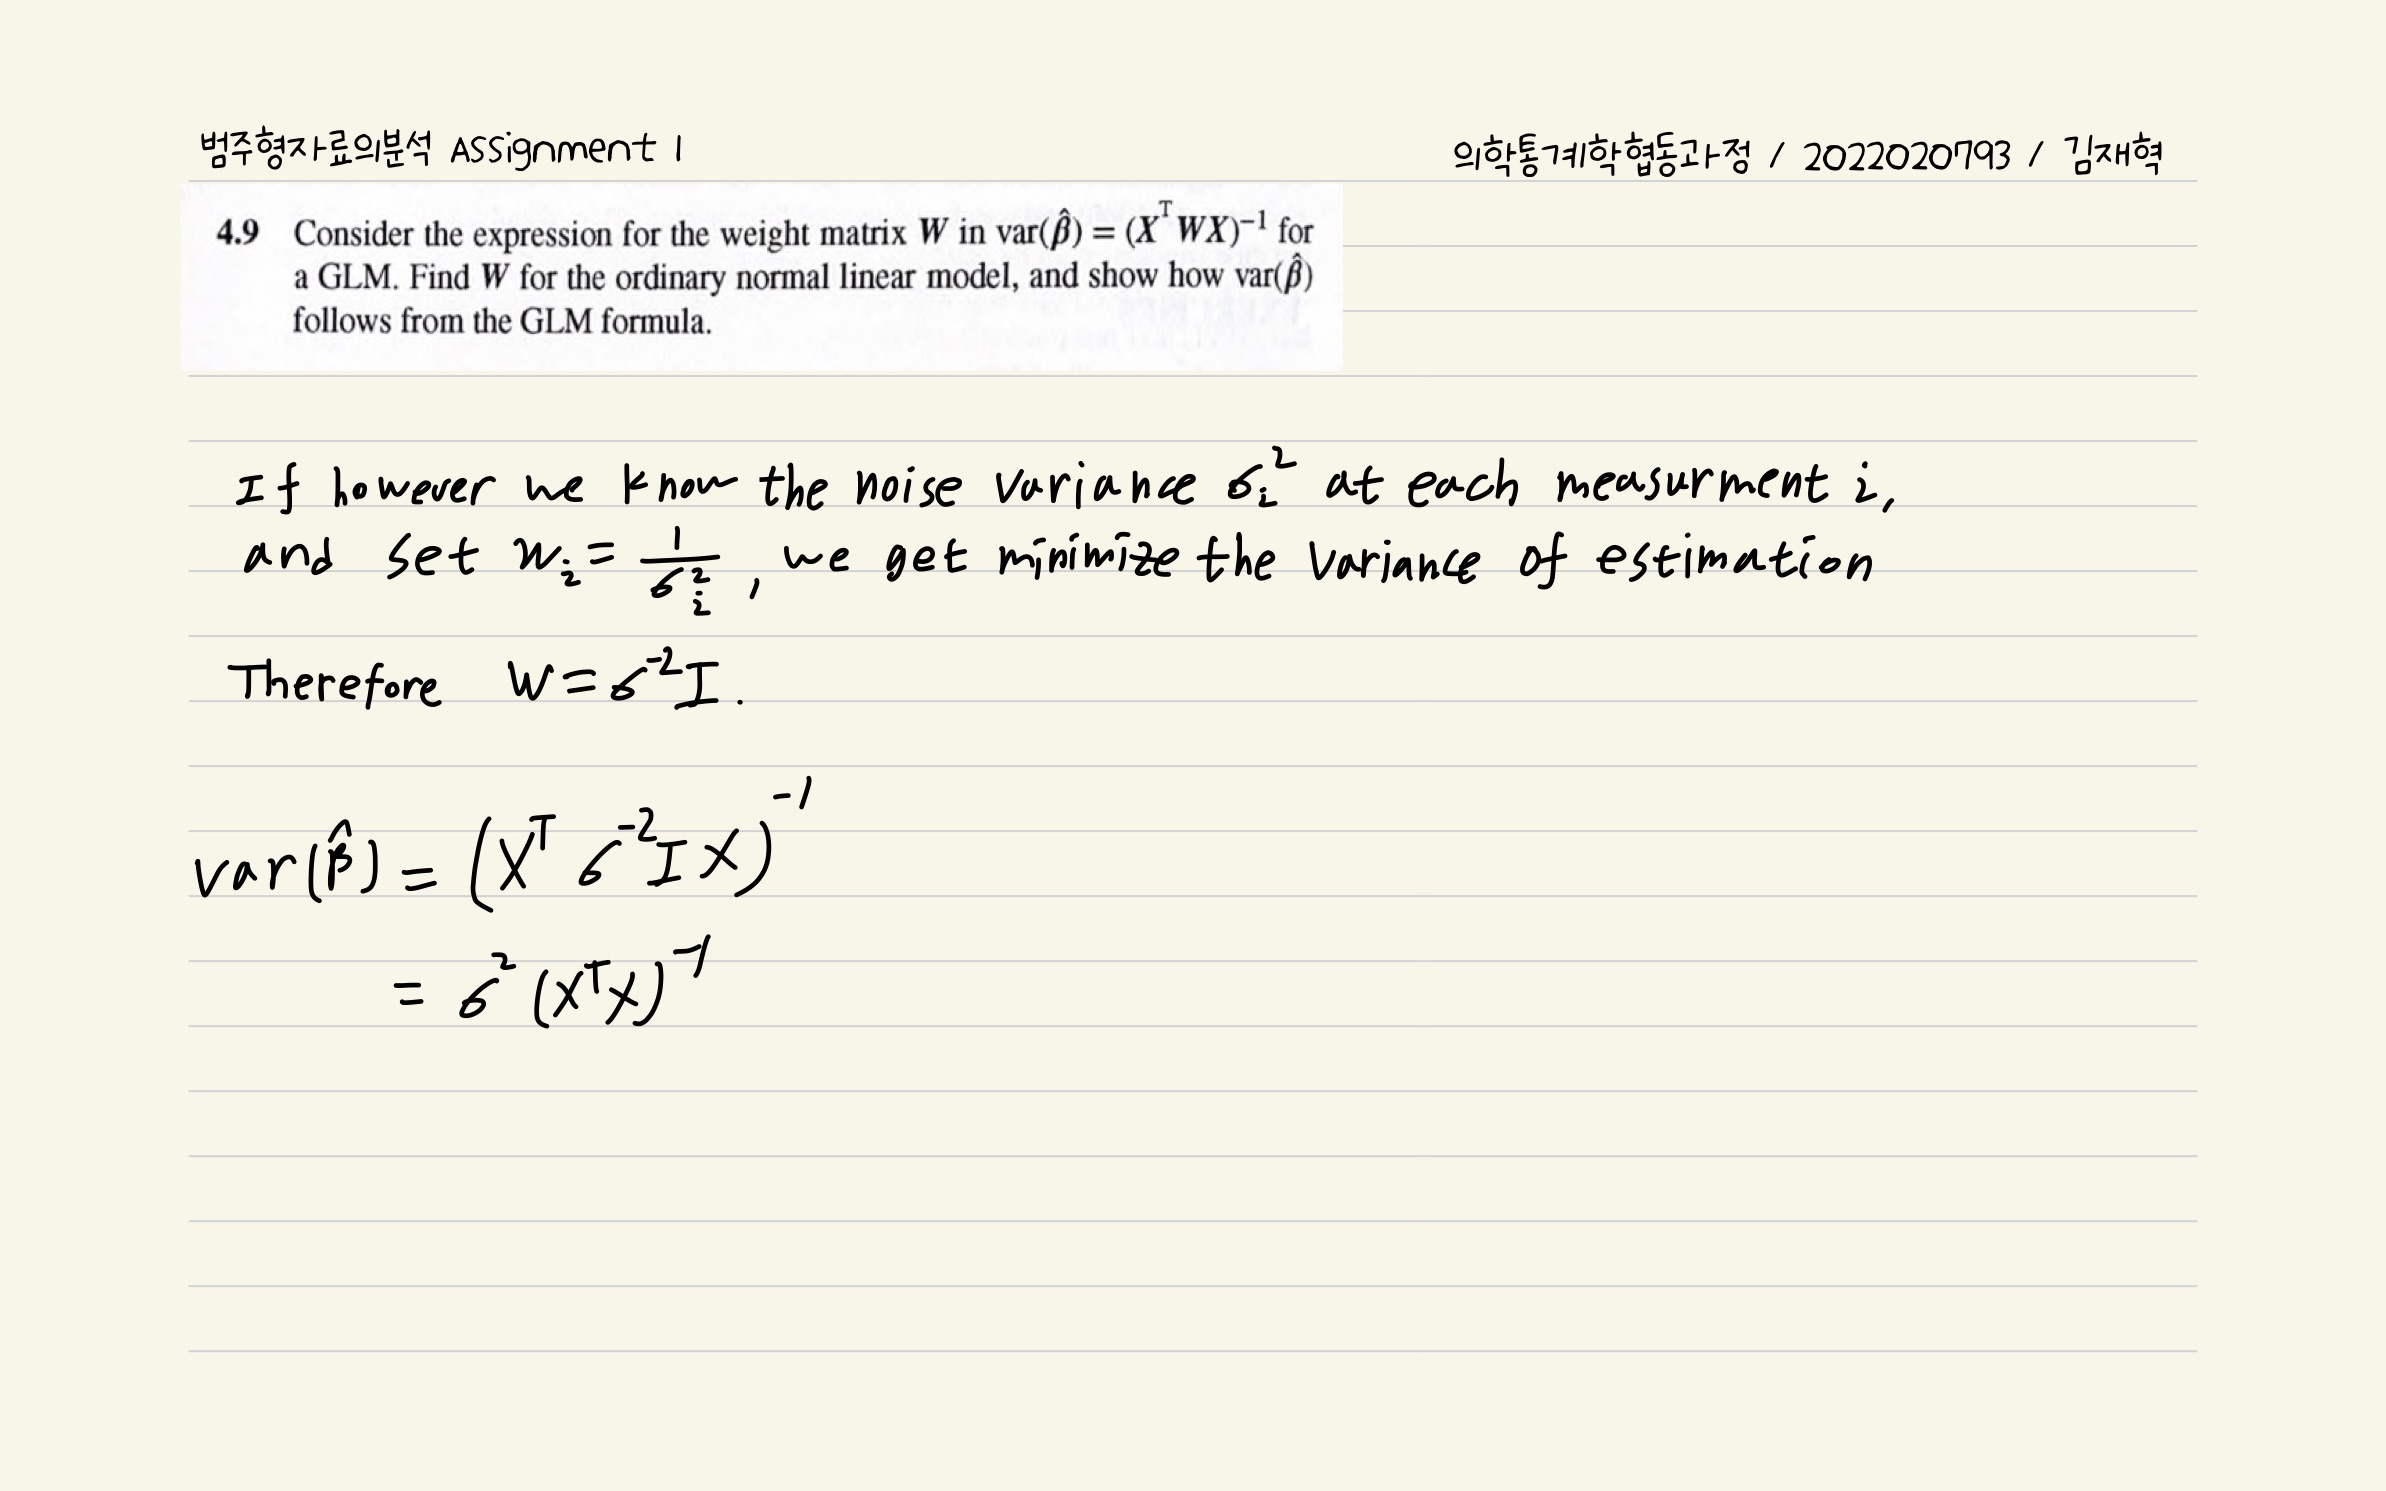 범주형자료의분석 Assignment 1
의학통계학협동과정 / 2022020793 / 김재혁
4.9 Consider the expression for the weight matrix W in var(β̂) = (XᵀWX)⁻¹ for
a GLM. Find W for the ordinary normal linear model, and show how var(β̂)
follows from the GLM formula.
If however we know the noise variance σᵢ² at each measurment i,
and set wᵢ = 1/σᵢ², we get minimize the variance of estimation
Therefore W = σ⁻²I.
var(β̂) = (Xᵀ σ⁻²I X)⁻¹
= σ² (XᵀX)⁻¹